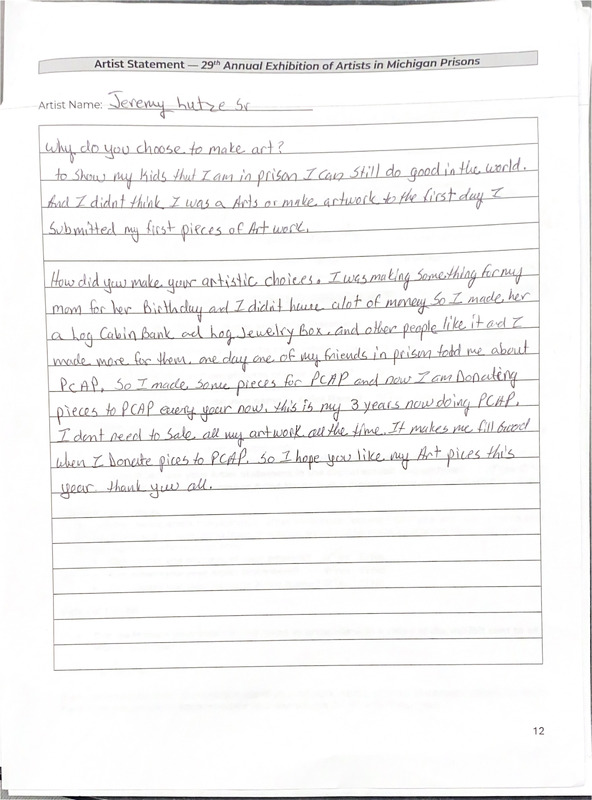 Artist Statement — 29th Annual Exhibition of Artists in Michigan Prisons
Artist Name: Jeremy Lutze Sr
Why do you choose to make art?
to show my kids that I am in prison I can still do good in the world.
And I didnt think I was a Arts or make artwork to the first day I
Submitted my first pieces of Art work.
How did you make your artistic choices. I was making something for my
mom for her Birthday and I didn't have alot of money So I made her
a Log Cabin Bank ad Log Jewelry Box, and other people like it ad I
made more for them. one day one of my friends in prison told me about
PCAP, So I made some pieces for PCAP and now I am Donating
pieces to PCAP every year now. this is my 3 years now doing PCAP.
I dont need to Sale all my artwork all the time. It makes me fill Good
when I Donate pices to PCAP. So I hope you like my Art pices this
year thank you all.
12